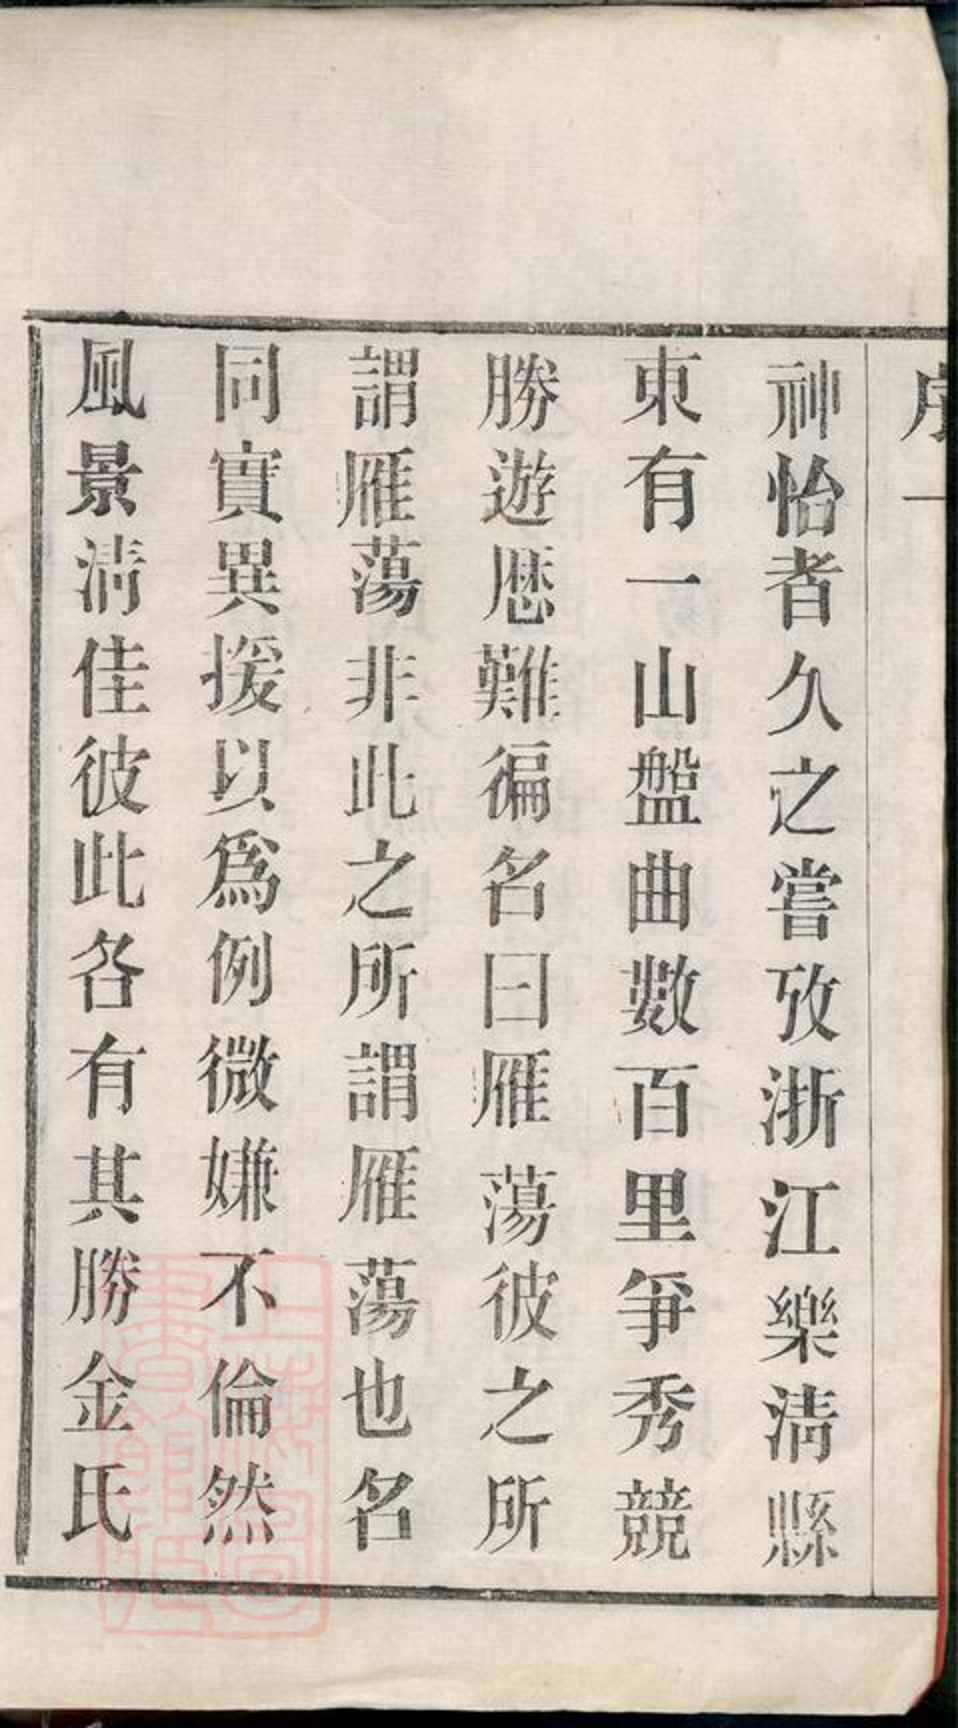 序一
神怡者久之嘗攷浙江樂清縣
東有一山盤曲數百里爭秀競
勝遊歷難徧名曰雁蕩彼之所
謂雁蕩非此之所謂雁蕩也名
同實異援以為例微嫌不倫然
風景清佳彼此各有其勝金氏
上海圖書館藏